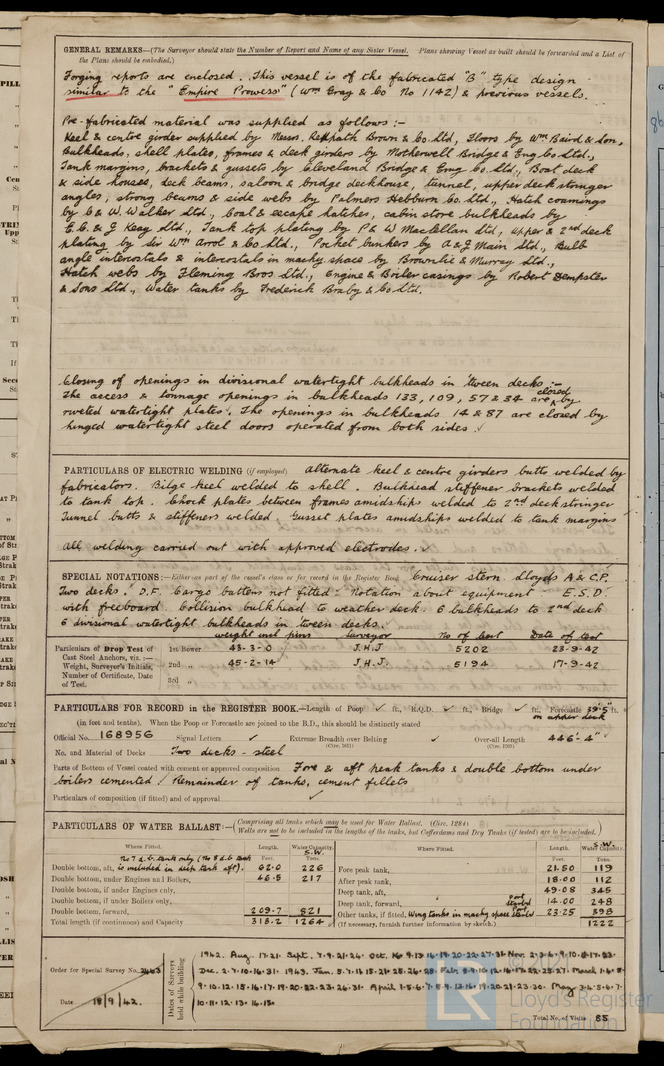 GENERAL REMARKS—(The Surveyor should state the Number of Report and Name of any Sister Vessel. Plans showing Vessel as built should be forwarded and a List of
the Plans should be embodied.)
Forging reports are enclosed. This vessel is of the fabricated "B" type design
similar to the "Empire Prowess" (Wm Gray & Co No 1142) & previous vessels.
Pre-fabricated material was supplied as follows :-
Keel & centre girder supplied by Messrs. Redpath Brown & Co. Ltd, Floors by Wm Baird & Son,
Bulkheads, shell plates, frames & deck girders by Motherwell Bridge & Eng Co. Ltd.,
Tank margins, brackets & gussets by Cleveland Bridge & Eng Co. Ltd., Boat deck
& side houses, deck beams, saloon & bridge deckhouse, tunnel, upper deck stringer
angles, strong beams & side webs by Palmers Hebburn Co. Ltd., Hatch coamings
by C & W. Walker Ltd., Coal & escape hatches, cabin store bulkheads by
E. C. & J Keay Ltd., Tank top plating by P & W Maclellan Ltd, upper & 2nd deck
plating by Sir Wm Arrol & Co Ltd., Pocket bunkers by A & J Main Ltd., Bulb
angle intercostals & intercostals in machy space by Brownlie & Murray Ltd.,
Hatch webs by Fleming Bros Ltd., Engine & Boiler casings by Robert Dempster
& Sons Ltd., Water tanks by Frederick Braby & Co Ltd.
Closing of openings in divisional watertight bulkheads in 'tween decks :-
The access & tonnage openings in bulkheads 133, 109, 57 & 34 are closed by
riveted watertight plates. The openings in bulkheads 14 & 87 are closed by
hinged watertight steel doors operated from both sides.
PARTICULARS OF ELECTRIC WELDING (if employed) Alternate keel & centre girders butts welded by
fabricators. Bilge keel welded to shell. Bulkhead stiffener brackets welded
to tank top. Chock plates between frames amidships welded to 2nd deck stringer
Tunnel butts & stiffeners welded. Gusset plates amidships welded to tank margins
All welding carried out with approved electrodes.
SPECIAL NOTATIONS:—Either as part of the vessel's class or for record in the Register Book Cruiser stern. Lloyds A & C.P.
Two decks. D.F. Cargo battens not fitted. Notation about equipment E.S.D.
with freeboard. Collision bulkhead to weather deck. 6 bulkheads to 2nd deck
6 divisional watertight bulkheads in tween decks.
weight incl pins Surveyor No of Cert Date of test
Particulars of Drop Test of Cast Steel Anchors, viz.:— Weight, Surveyor's Initials, Number of Certificate, Date of Test.
1st Bower 43-3-0 J.H.J 5202 23-9-42
2nd " 45-2-14 J.H.J. 5194 17-9-42
3rd "
PARTICULARS FOR RECORD in the REGISTER BOOK.—Length of Poop ✓ ft., R.Q.D. ✓ ft., Bridge ✓ ft., Forecastle 39.5 ft.
on upper deck
(in feet and tenths). When the Poop or Forecastle are joined to the B.D., this should be distinctly stated
Official No. 168956 Signal Letters ✓ Extreme Breadth over Belting ✓ Over-all Length 446'-4"
No. and Material of Decks Two decks - steel
Parts of Bottom of Vessel coated with cement or approved composition Fore & aft peak tanks & double bottom under
boilers cemented. Remainder of tanks, cement fillets
Particulars of composition (if fitted) and of approval ✓
PARTICULARS OF WATER BALLAST:—(Comprising all tanks which may be used for Water Ballast. (Circ. 1284)
Wells are not to be included in the lengths of the tanks, but Cofferdams and Dry Tanks (if tested) are to be included.)
Where Fitted. Length. Water Capacity. S.W. Where Fitted. Length. Water Capacity. S.W.
Feet. Tons. Feet. Tons.
Double bottom, aft, is included in deep tank aft). 62.0 226 Fore peak tank, 21.50 119
Double bottom, under Engines and Boilers, 46.5 217 After peak tank, 18.00 112
Double bottom, if under Engines only, Deep tank, aft, 49.08 345
Double bottom, if under Boilers only, Deep tank, forward, 14.00 248
Double bottom, forward, 209.7 821 Other tanks, if fitted, Wing tanks in machy space 23.25 398
Total length (if continuous) and Capacity 318.2 1264 (If necessary, furnish further information by sketch.) 1222
Order for Special Survey No.
Date 18/9/42.
Dates of Surveys held while building
Total No. of Visits 85
© 2021
LR Lloyd's Register
Foundation